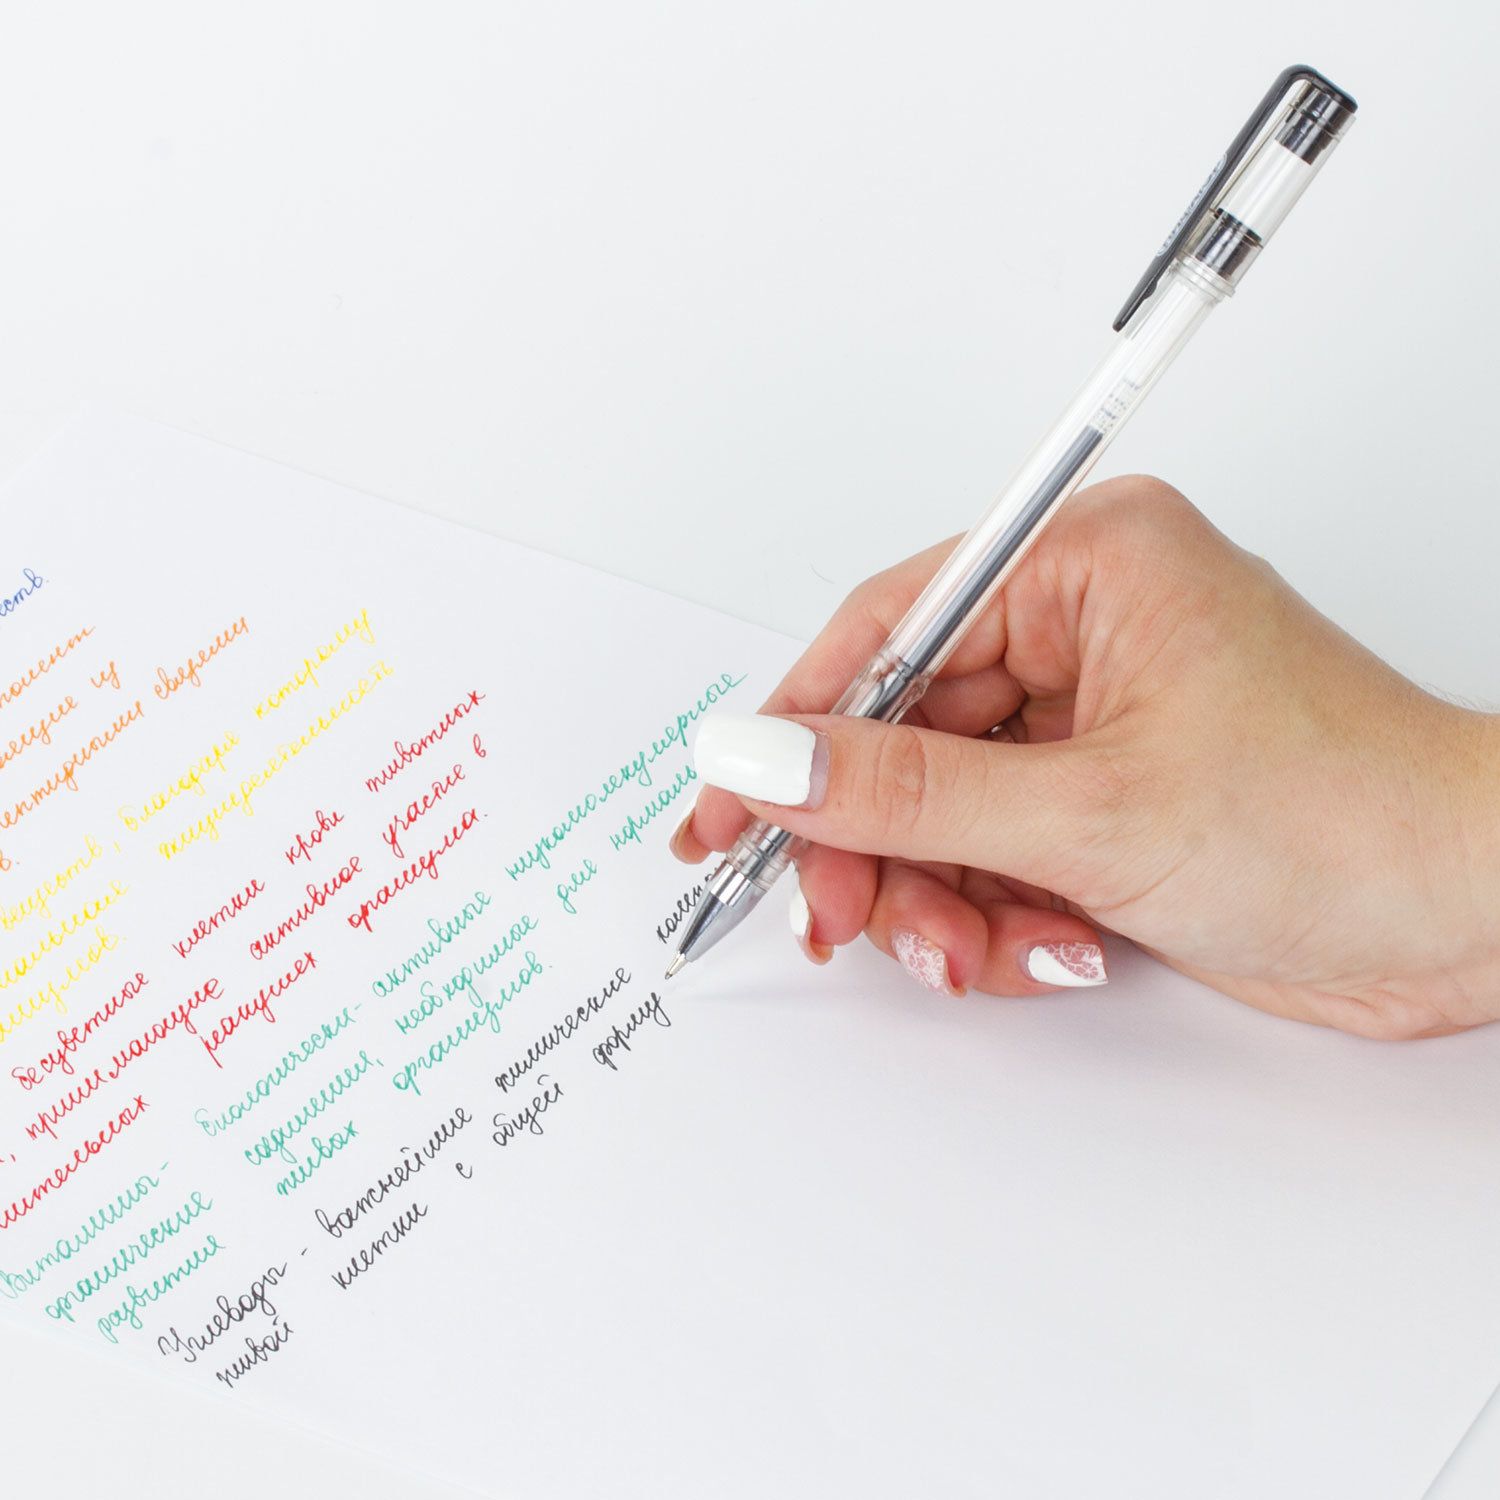 еств.
понент
ентирными связями
в.
веществ, благодаря которому
жизнедеятельность
бесцветные клетки крови животных
, принимающие активное участие в
реакциях организма.
Витамины - биологически-активные низкомолекулярные
органические соединения, необходимые для нормаль
развития живых организмов.
Углеводы - важнейшие химические компо
живой клетки с общей форму